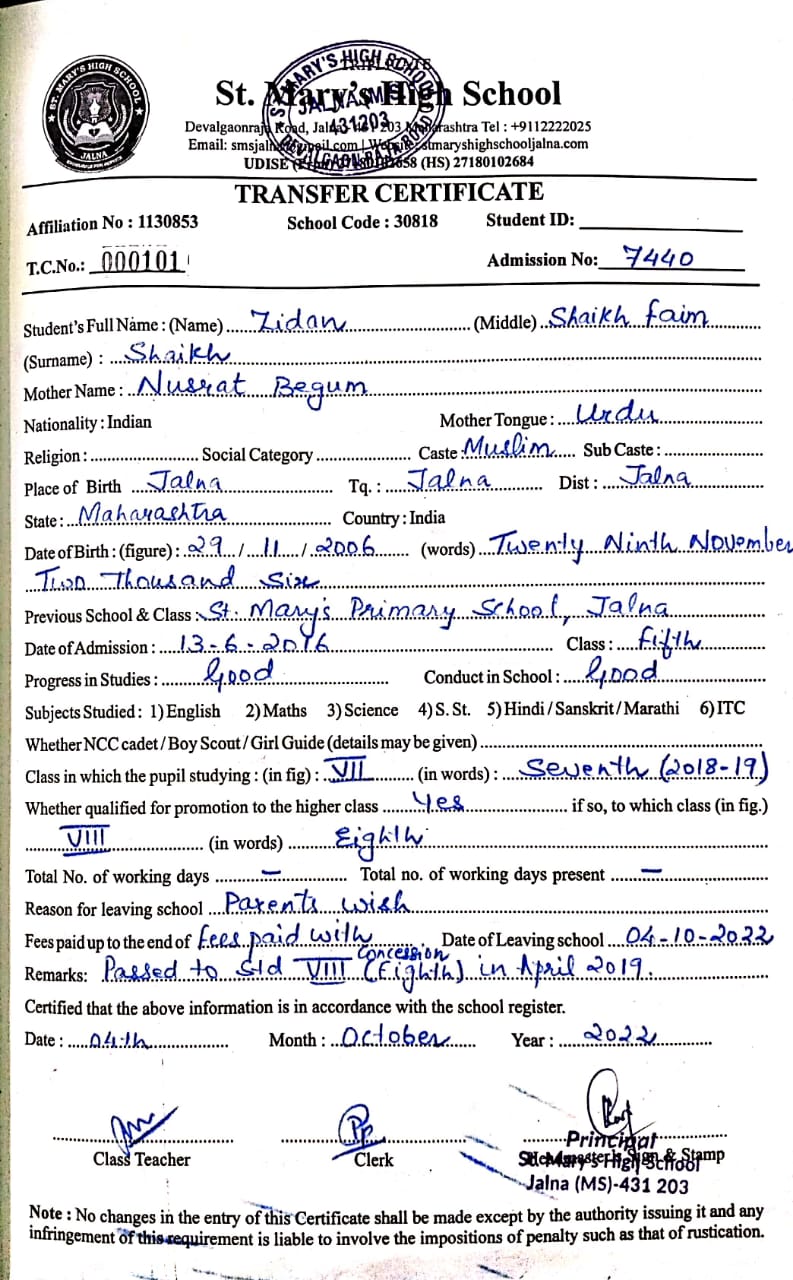 ST. MARY'S HIGH SCHOOL
JALNA
ST. MARY'S HIGH SCHOOL
JALNA (MS)
431203
DEVALGAON RAJA ROAD
St. Mary's High School
Devalgaonraja Road, Jalna 431 203 Maharashtra Tel : +9112222025
Email: | stmaryshighschooljalna.com
UDISE (HS) 27180102684
TRANSFER CERTIFICATE
Affiliation No : 1130853 School Code : 30818 Student ID:
T.C.No.: 000101 Admission No: 7440
Student's Full Name : (Name) Zidan (Middle) Shaikh Faim
(Surname) : Shaikh
Mother Name : Nusrat Begum
Nationality : Indian Mother Tongue : Urdu
Religion : Social Category Caste : Muslim Sub Caste :
Place of Birth Jalna Tq. : Jalna Dist : Jalna
State : Maharashtra Country : India
Date of Birth : (figure) : 29 / 11 / 2006 (words) Twenty Ninth November
Two Thousand Six
Previous School & Class : St. Mary's Primary School, Jalna
Date of Admission : 13-6-2016 Class : Fifth
Progress in Studies : Good Conduct in School : Good
Subjects Studied : 1) English 2) Maths 3) Science 4) S. St. 5) Hindi / Sanskrit / Marathi 6) ITC
Whether NCC cadet / Boy Scout / Girl Guide (details may be given)
Class in which the pupil studying : (in fig) : VII (in words) : Seventh (2018-19)
Whether qualified for promotion to the higher class Yes if so, to which class (in fig.)
VIII (in words) Eighth
Total No. of working days - Total no. of working days present -
Reason for leaving school Parents wish
Fees paid up to the end of Fees paid with concession Date of Leaving school 04-10-2022
Remarks: Passed to Std VIII (Eighth) in April 2019.
Certified that the above information is in accordance with the school register.
Date : 04th Month : October Year : 2022
Principal
Class Teacher Clerk Sign & Stamp
St. Mary's High School
Jalna (MS)-431 203
Note : No changes in the entry of this Certificate shall be made except by the authority issuing it and any
infringement of this requirement is liable to involve the impositions of penalty such as that of rustication.